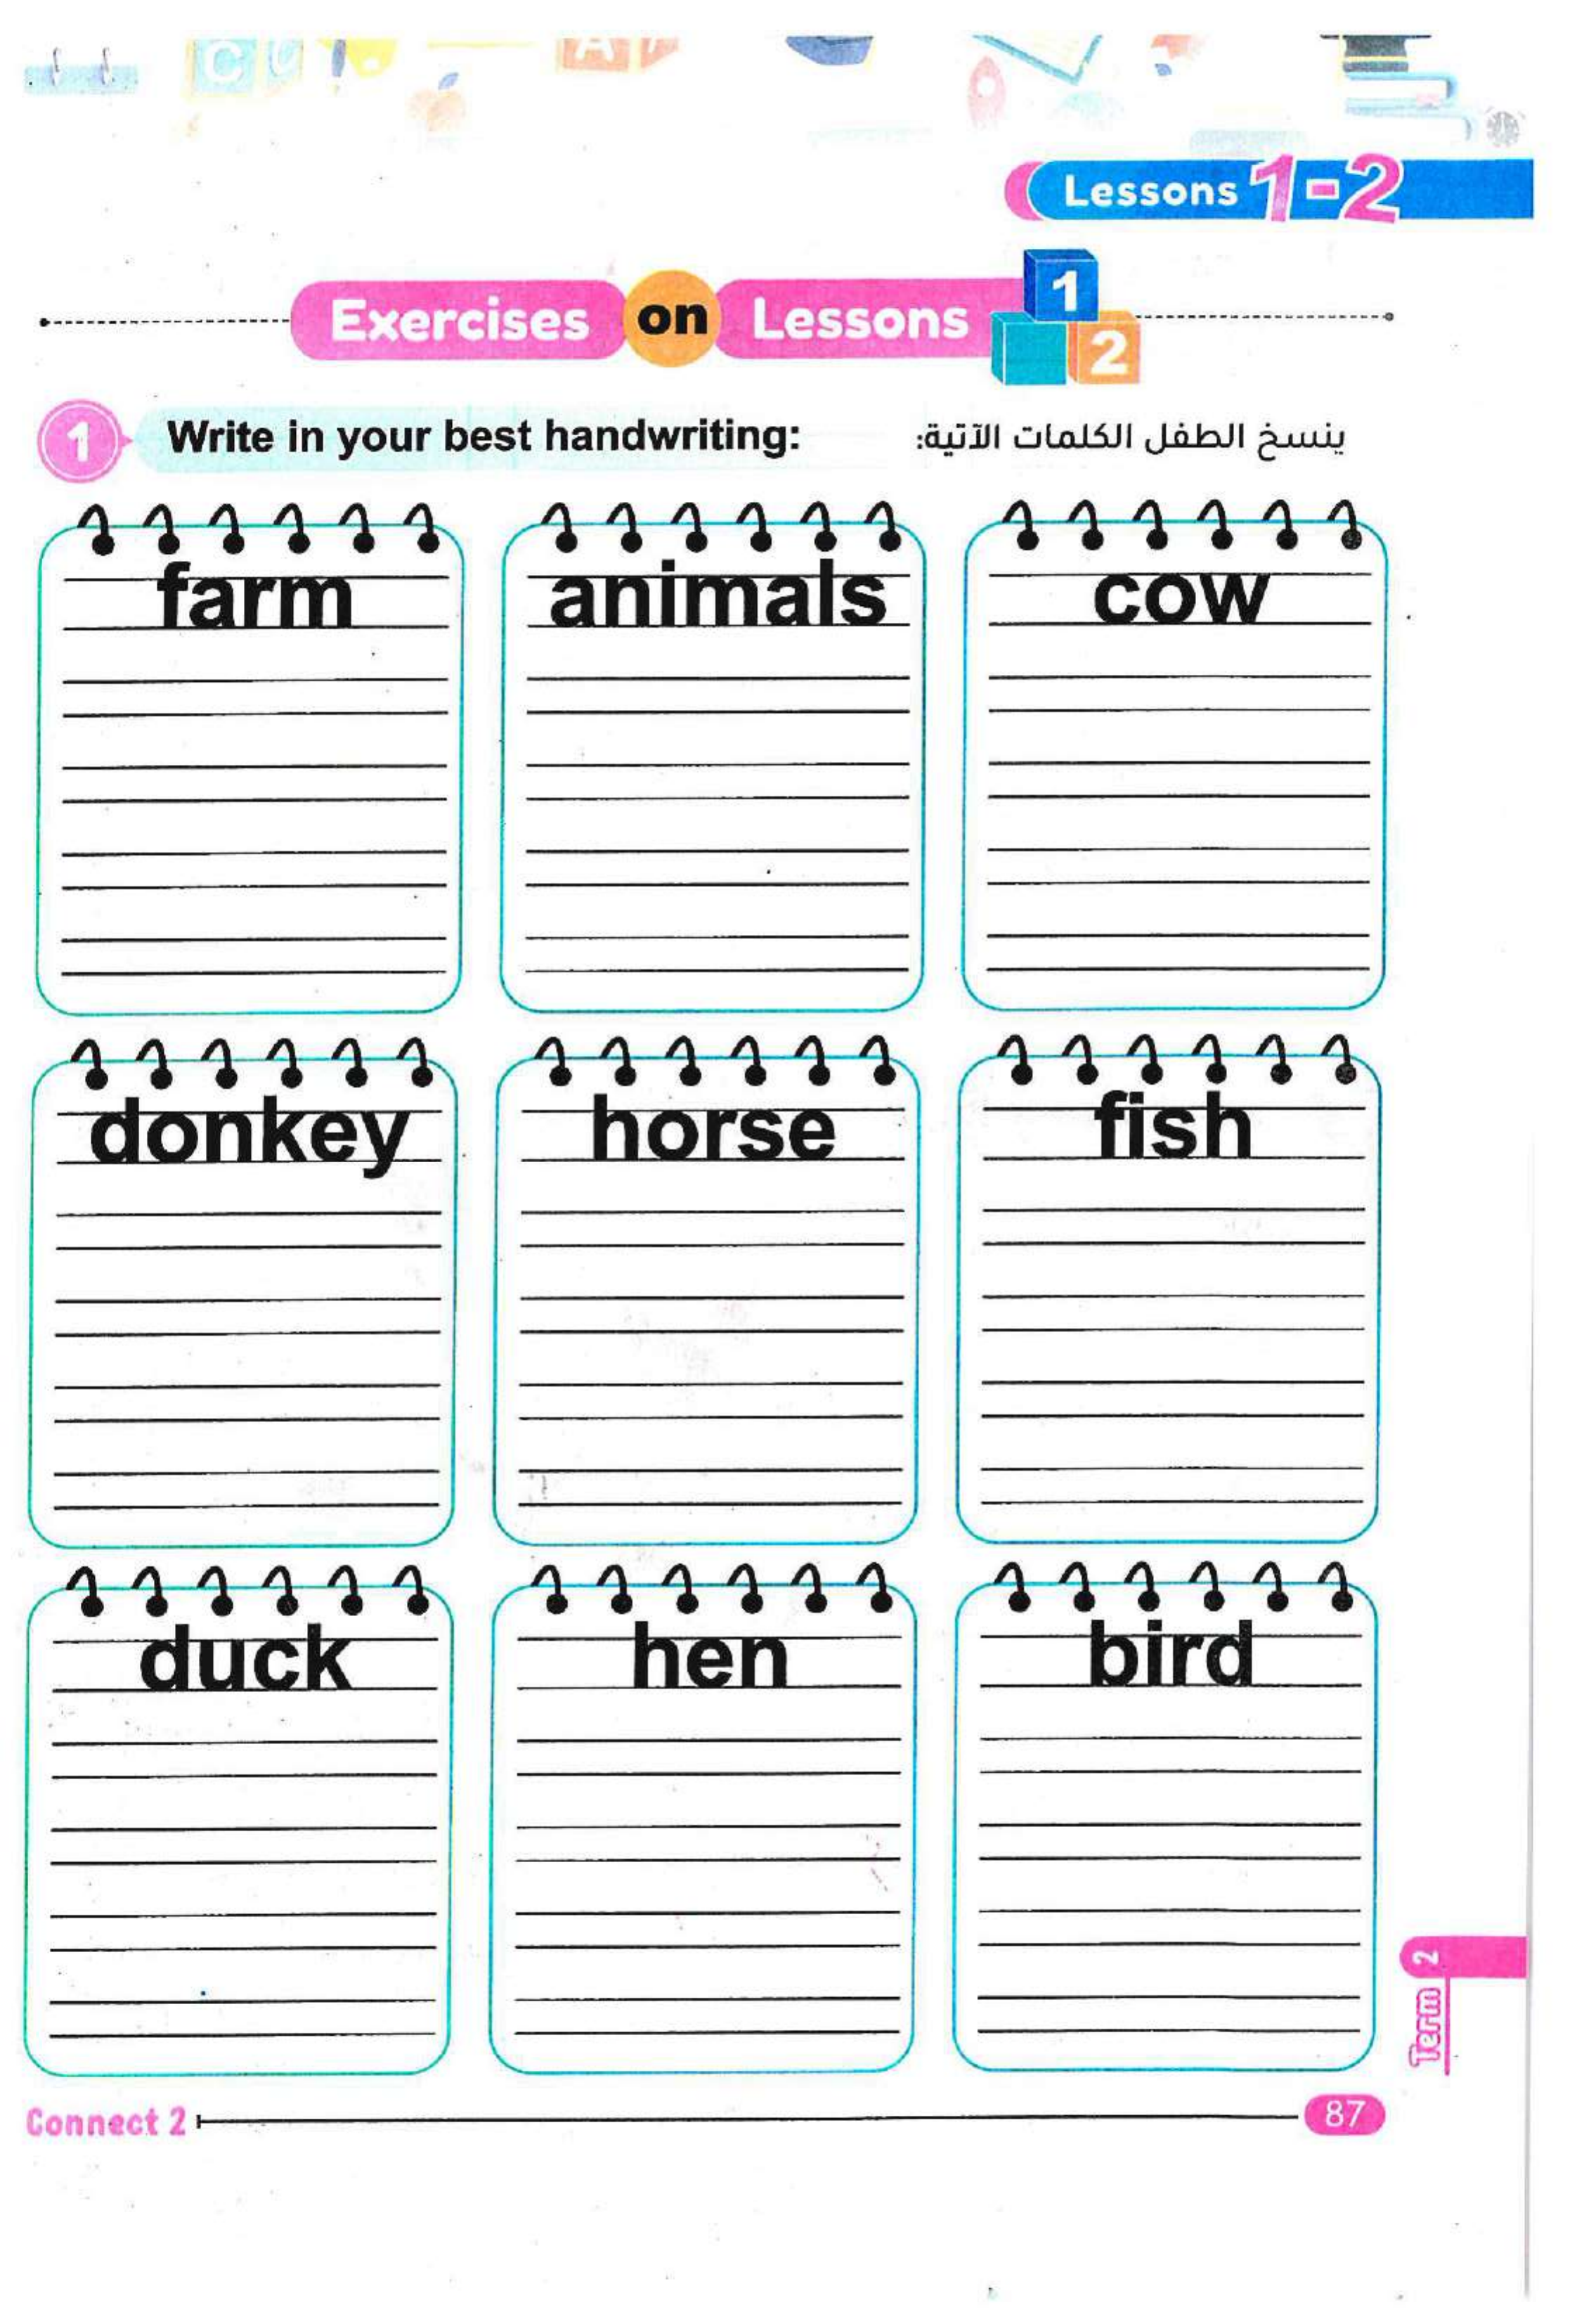 C
A
Lessons 1-2
Exercises on Lessons 1 2
1 Write in your best handwriting: ينسخ الطفل الكلمات الآتية:
farm animals cow
donkey horse fish
duck hen bird
Term 2
Connect 2 87